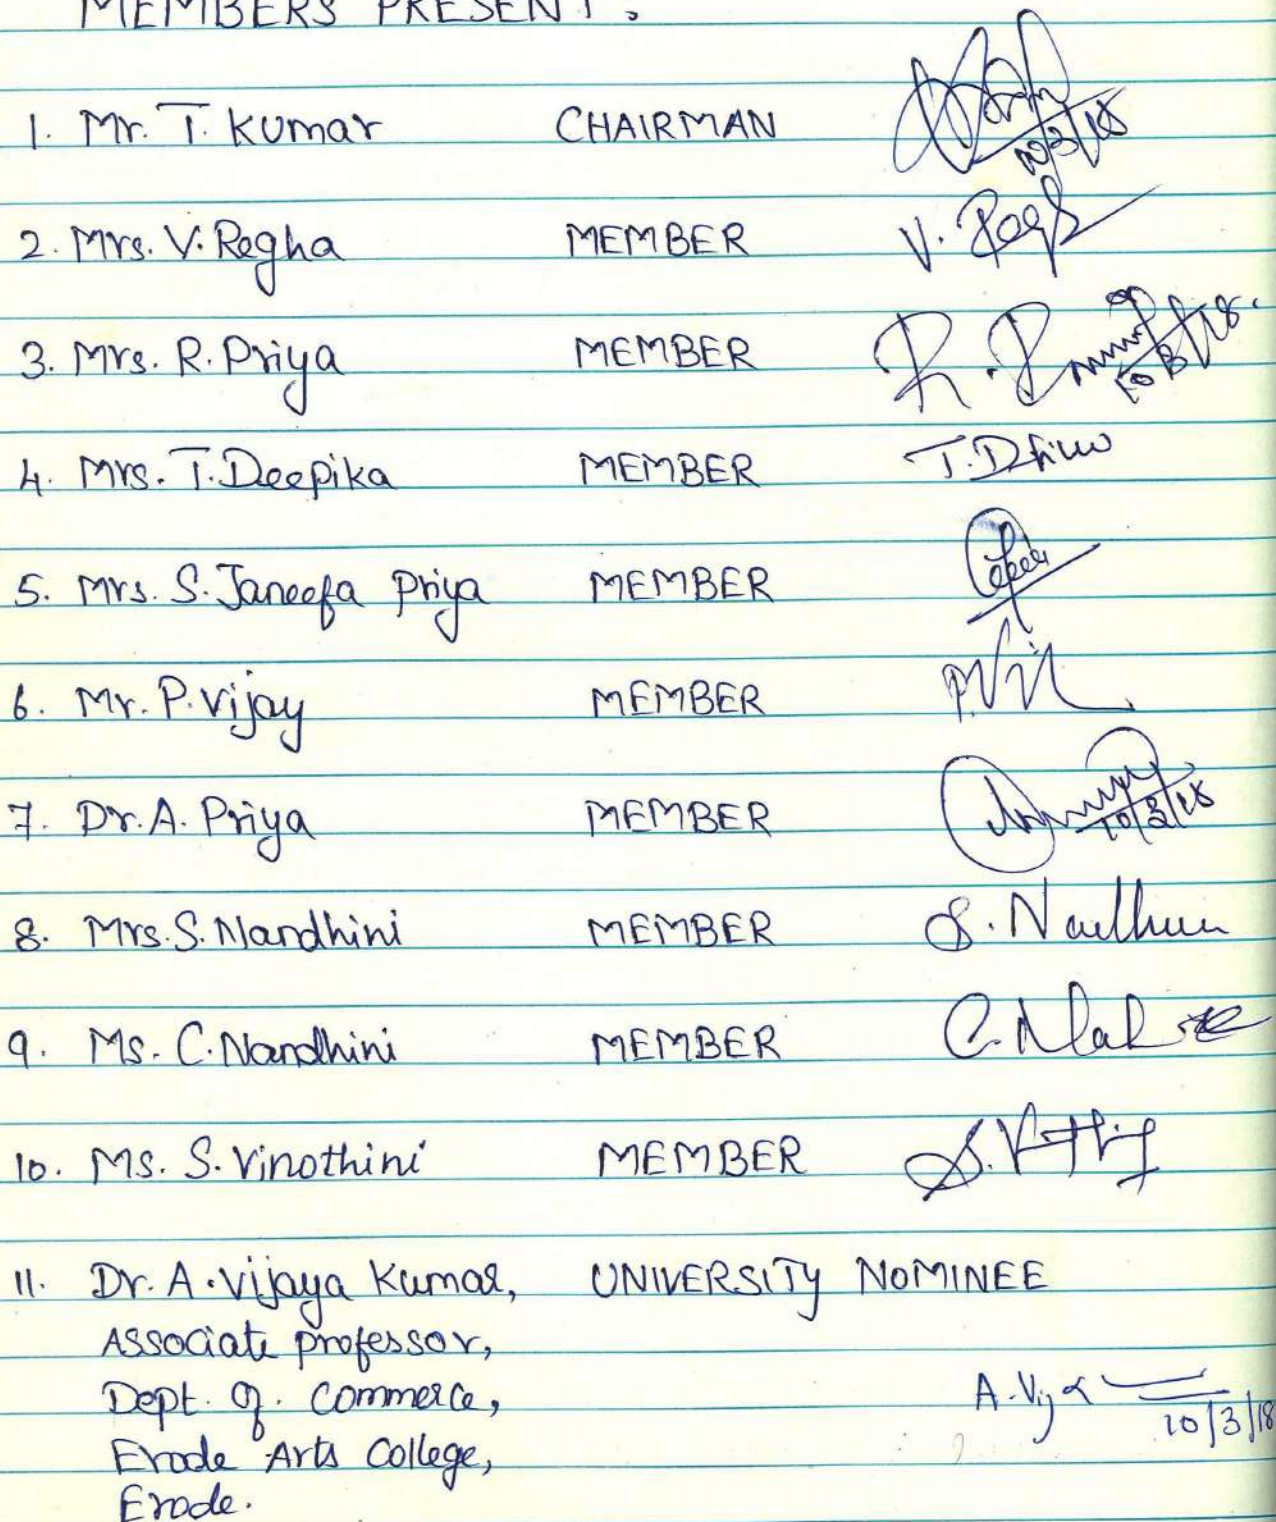 MEMBERS PRESENT:
1. Mr. T. Kumar CHAIRMAN 10/3/18
2. Mrs. V. Regha MEMBER V.
3. Mrs. R. Priya MEMBER R. 10/3/18.
4. Mrs. T. Deepika MEMBER T.
5. Mrs. S. Janeefa Priya MEMBER
6. Mr. P. Vijay MEMBER
7. Dr. A. Priya MEMBER 10/3/18
8. Mrs. S. Nandhini MEMBER S.
9. Ms. C. Nandhini MEMBER C.
10. Ms. S. Vinothini MEMBER S.
11. Dr. A. Vijaya Kumar, UNIVERSITY NOMINEE
Associate professor,
Dept. of. Commerce, A. 10/3/18
Erode Arts College,
Erode.